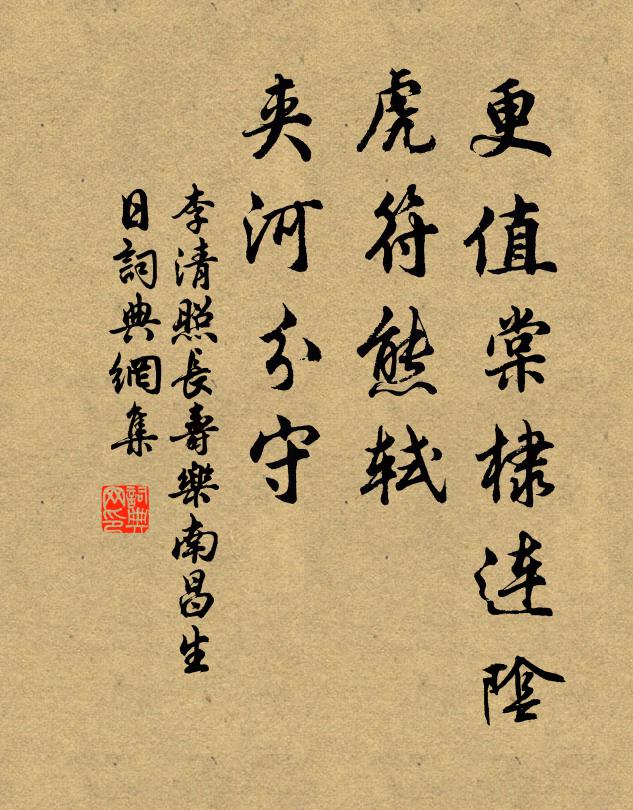 更值棠棣连陰
虎符熊轼
夹河分守
李清照長壽樂南昌生
日詞典網集
詞典
网印